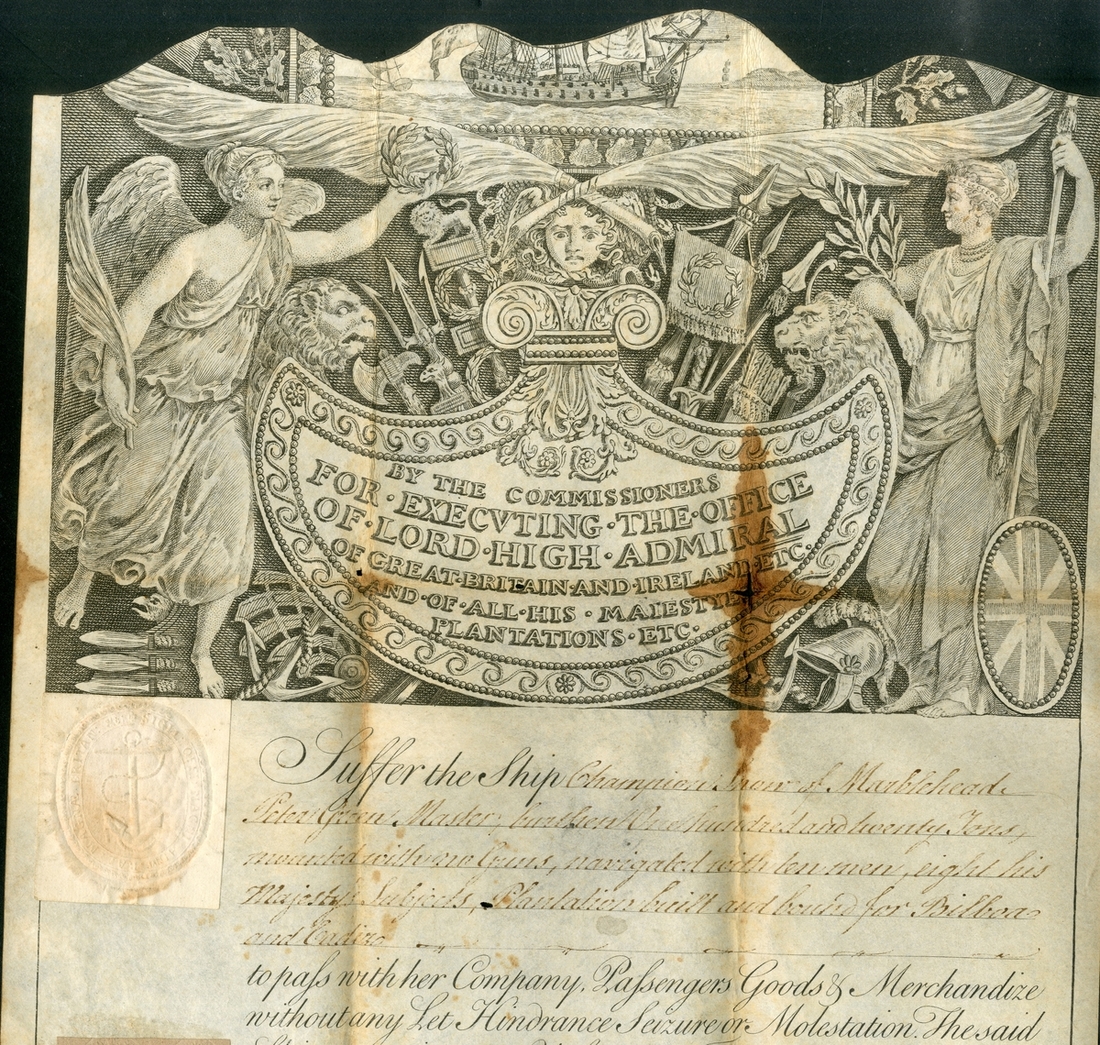 BY THE COMMISSIONERS
FOR·EXECVTING·THE·OFFICE
OF·LORD·HIGH·ADMIRAL
OF·GREAT·BRITAIN·AND·IRELAND·ETC.
AND·OF·ALL·HIS·MAIESTY
PLANTATIONS·ETC·
Suffer the Ship Champion Snow of Marblehead
Peter Green Master, burthen One hundred and twenty Tons,
mounted with no Guns, navigated with ten men, eight his
Majesty's Subjects, Plantation built and bound for Bilboa
and Cadiz
to pass with her Company, Passengers Goods & Merchandize
without any Let Hindrance Seizure or Molestation. The said